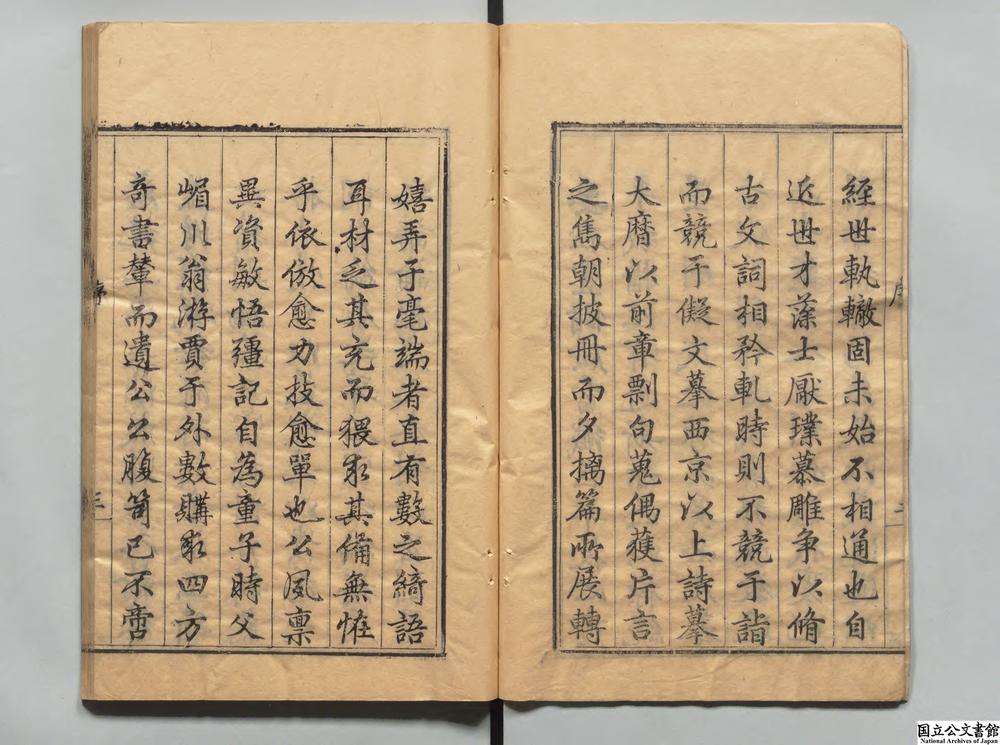 經世軌轍固未始不相通也自
近世才藻士厭璞慕雕争以脩
古文詞相矜軋時則不競于詣
而競于儗文摹西京以上詩摹
大曆以前章剽句蒐偶獲片言
之雋朝披冊而夕摛篇所展轉
嬉弄于毫端者直有數之綺語
耳材乏其充而猥求其備無惟
乎依倣愈力技愈單也公夙禀
異資敏悟彊記自為童子時父
嵋川翁游賈于外數購求四方
奇書輦而遺公公腹笥已不啻
序
三
国立公文書館
National Archives of Japan